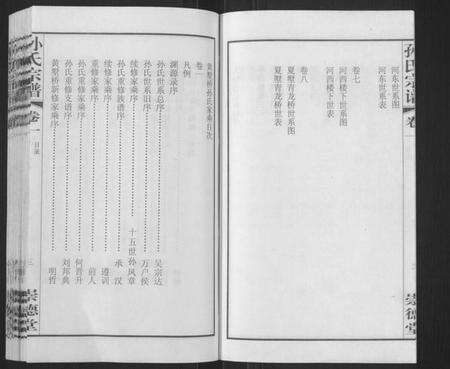 孙氏宗谱 卷一
崇德堂
河东世系图
河东世系表
卷七
河西楼下世系图
河西楼下世表
卷八
夏墅青龙桥世系图
夏墅青龙桥世表
黄墅桥孙氏家乘目次
卷一
凡例
渊源录序
孙氏世系总序 吴宗达
孙氏世系旧序 万户侯
续修家乘序 十五世孙凤章
孙氏重修族谱序 承汉
续修家乘序 遵训
重修家乘序 前人
孙氏重修家乘序 何晋升
孙氏重修支谱序 刘邦典
黄墅桥新修家乘序 明哲
孙氏宗谱 卷一 目录
三
崇德堂